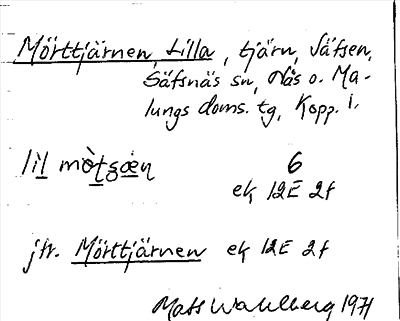 Mörttjärnen, Lilla, tjärn, Säfsen,
Säfsnäs sn, Nås o. Ma-
lungs doms. tg, Kopp. l.
lìl mò̀tʂœn 6
ek 12E 2f
jfr. Mörttjärnen ek 12E 2f
Mats Wahlberg 1971